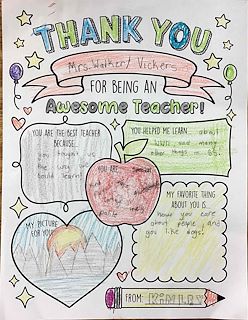 THANK YOU
Mrs. Walker/ Vickers
FOR BEING AN
Awesome Teacher!
YOU ARE THE BEST TEACHER
BECAUSE
you taught us
the way we
could learn!
YOU HELPED ME LEARN about
WWII and many
other things in 6th
YOU ARE special
and
MY FAVORITE THING
ABOUT YOU IS
how you care
about people and
you like dogs!
MY PICTURE
FOR YOU
FROM: KiMLEY